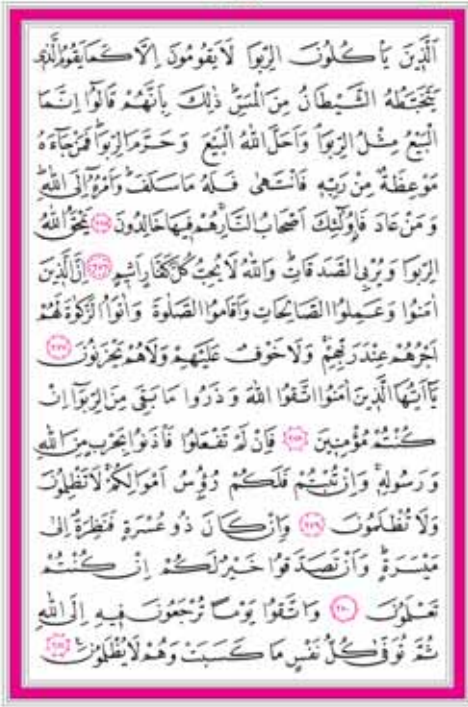 اَلَّذ۪ينَ يَأْكُلُونَ الرِّبٰوا لَا يَقُومُونَ اِلَّا كَمَا يَقُومُ الَّذ۪ي
يَتَخَبَّطُهُ الشَّيْطَانُ مِنَ الْمَسِّۜ ذٰلِكَ بِاَنَّهُمْ قَالُٓوا اِنَّمَا
الْبَيْعُ مِثْلُ الرِّبٰواۢ وَاَحَلَّ اللّٰهُ الْبَيْعَ وَحَرَّمَ الرِّبٰواۜ فَمَنْ جَٓاءَهُ
مَوْعِظَةٌ مِنْ رَبِّه۪ فَانْتَهٰى فَلَهُ مَا سَلَفَۜ وَاَمْرُهُٓ اِلَى اللّٰهِۜ
وَمَنْ عَادَ فَاُو۬لٰٓئِكَ اَصْحَابُ النَّارِۚ هُمْ ف۪يهَا خَالِدُونَ ﴿٢٧٥﴾ يَمْحَقُ اللّٰهُ
الرِّبٰوا وَيُرْبِي الصَّدَقَاتِۜ وَاللّٰهُ لَا يُحِبُّ كُلَّ كَفَّارٍ اَث۪يمٍ ﴿٢٧٦﴾ اِنَّ الَّذ۪ينَ
اٰمَنُوا وَعَمِلُوا الصَّالِحَاتِ وَاَقَامُوا الصَّلٰوةَ وَاٰتَوُا الزَّكٰوةَ لَهُمْ
اَجْرُهُمْ عِنْدَ رَبِّهِمْۚ وَلَا خَوْفٌ عَلَيْهِمْ وَلَا هُمْ يَحْزَنُونَ ﴿٢٧٧﴾
يَٓا اَيُّهَا الَّذ۪ينَ اٰمَنُوا اتَّقُوا اللّٰهَ وَذَرُوا مَا بَقِيَ مِنَ الرِّبٰٓوا اِنْ
كُنْتُمْ مُؤْمِن۪ينَ ﴿٢٧٨﴾ فَاِنْ لَمْ تَفْعَلُوا فَأْذَنُوا بِحَرْبٍ مِنَ اللّٰهِ
وَرَسُولِه۪ۚ وَاِنْ تُبْتُمْ فَلَكُمْ رُؤُ۫سُ اَمْوَالِكُمْۚ لَا تَظْلِمُونَ
وَلَا تُظْلَمُونَ ﴿٢٧٩﴾ وَاِنْ كَانَ ذُو عُسْرَةٍ فَنَظِرَةٌ اِلٰى
مَيْسَرَةٍۜ وَاَنْ تَصَدَّقُوا خَيْرٌ لَكُمْ اِنْ كُنْتُمْ
تَعْلَمُونَ ﴿٢٨٠﴾ وَاتَّقُوا يَوْمًا تُرْجَعُونَ ف۪يهِ اِلَى اللّٰهِ
ثُمَّ تُوَفّٰى كُلُّ نَفْسٍ مَا كَسَبَتْ وَهُمْ لَا يُظْلَمُونَ ﴿٢٨١﴾